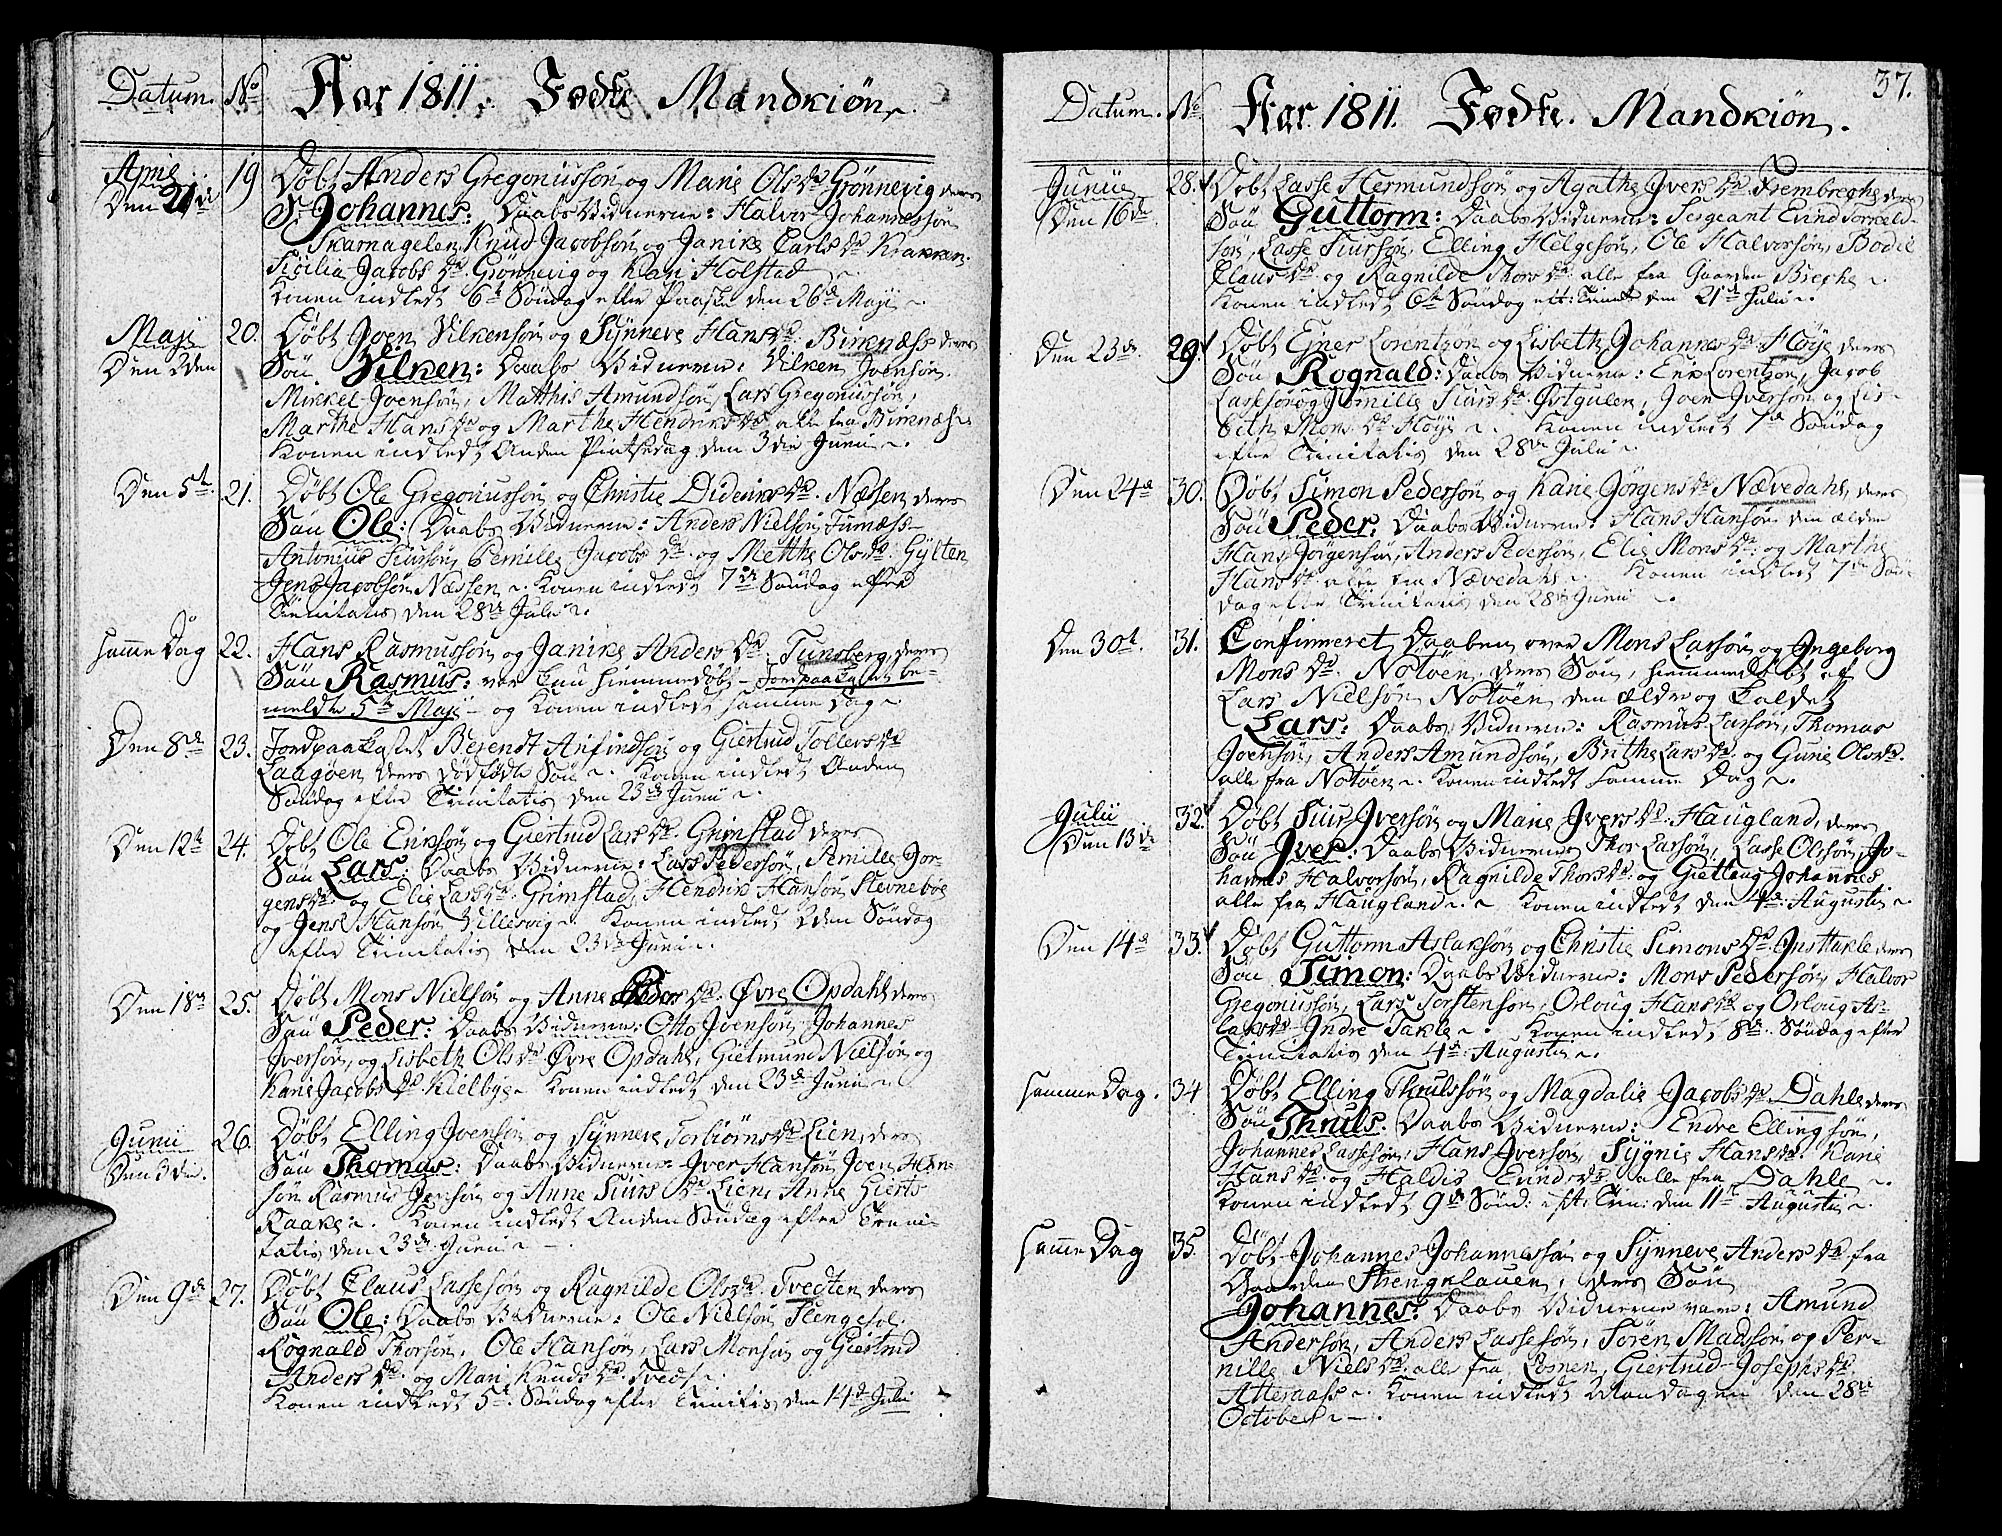 Datum. No Aar 1811. Fødte Mandkiøn.
April
Den 21de 19 Døbt Anders Gregoriussøn og Marie Olsdr. Grønnevig deres
S: Johannes: Daabs Vidnerne: Halvor Johannessøn
Skarnagelen, Knud Jacobsøn og Janike Carlsdr. Krakken
Sicilia Jacobsdr. Grønnevig og Kari Holstad
Konen indledt 6te Søndag efter Paaske den 26de Maji
Maji
Den 2den 20. Døbt Joen Vilkensøn og Synneve Hansdr. Birknæss deres
Søn Vilken: Daabs Vidnerne: Vilken Joensøn
Mikkel Joensøn, Matthis Amundsøn, Lars Gregoriussøn,
Marthe Hansdr. og Marthe Hendriksdr. alle fra Birknæs
Konen indledt Anden Pintsedag den 3die Junii
Den 5te 21. Døbt Ole Gregoriussøn og Christie Dideriksdr. Næssen deres
Søn Ole: Daabs Vidnerne: Anders Nielsøn
Antonius Siursøn, Pernille Jacobsdr. og Metthe Olsdr. Gylten
Jens Jacobsøn Næssen. Konen indledt 7de Søndag efter
Trinitatis den 28de Julii
samme Dag 22. Hans Rasmussøn og Janike Andersdr. Tunsberg, deres
Søn Rasmus: var hiemmedøbt Jordpaakastet be-
meldte 5te Maji og Konen indledt samme Dag
Den 8de 23. Jordpaakastet Berendt Anfindsøn og Giertrud Tollevsdr.
Laagøen deres dødfødte Søn. Konen indledt Anden
Søndag efter Trinitatis den 23de Junii
Den 12te 24. Døbt Ole Eriksøn og Giertrud Larsdr. Grimstad deres
Søn Lars: Daabs Vidnerne: Lars Pedersøn, Pernille Jør-
gensdr. og Elie Larsdr. Grimstad, Hendrik Hansøn Stevnebøe
og Jens Hansøn Villesvig. Konen indledt 2den Søndag
efter Trinitatis den 23de Junii
Den 18de 25. Døbt Mons Nielsøn og Anne Pedersdr. Øvre Opdahl deres
Søn Peder: Daabs Vidnerne: Otto Joensøn, Johannes
Iversøn, og Lisbeth Olsdr. Øvre Opdahl, Gietmund Nielsøn og
Kari Jacobsdr. Kielbye. Konen indledt den 23de Junii
Junii
Den 3die. 26. Døbt Elling Joensøn og Synneve Torbiørnsdr. Lien, deres
Søn Thomas: Daabs Vidnerne: Iver Hansøn, Joen Han-
søn, Rasmus Joensøn og Anne Siursdr. Lien, Anne Gierts
Raake. Konen indledt Anden Søndag efter Trini-
tatis den 23de Junii
Den 9de 27. Døbt Claus Lassesøn og Ragnilde Olsdr. Tvedten, deres
Søn Ole: Daabs Vidnerne: Ole Nielsøn Flengesol.
Rognald Thorsøn, Ole Hansøn, Lars Monsøn og Giertrud
Andersdr. og Mari Knudsdr. Tvedt
Konen indledt 5te Søndag efter Trinitis den 14de Julii
37.
Datum. No Aar 1811. Fødte. Mandkiøn.
Junii
Den 16de 28. Døbt Lasse Hermundsøn og Agathe Iversdr. Frembreche deres
Søn Guttorm: Daabs Vidnerne: Sergeant Evind Torkeld-
søn, Lasse Siursøn, Elling Helgesøn, Ole Halvorsøn, Bodil
Clausdr. og Ragnilde Thorsdr. alle fra Gaarden Breche
Konen indledt 6te Søndag eft: Trinit: den 21de Julii
Den 23de. 29. Døbt Ejner Lorentzøn og Lisbeth Johannesdr. Høye deres
Søn Rognald: Daabs Vidnerne: Erik Lorentzøn, Jacob
Lassesøn og Pernille Siursdr. Østgulen, Joen Iversøn og Lis-
beth Monsdr. Høye. Konen indledt 7de Søndag
efter Trinitatis den 28de Julii
Den 24de 30. Døbt Simon Pedersøn og Karie Jørgensdr. Nævedahl, deres
Søn Peder: Daabs Vidnerne: Hans Hansøn den ælder
Hans Jørgensøn, Anders Pedersøn, Elie Monsdr. og Marthe
Hansdr. alle fra Nævedahl. Konen indledt 7de Søn-
dag efter Trinitatis den 28de Junii
Den 30te. 31. Confirmeret Daaben over Mons Larsøn og Ingeborg
Monsdr. Notøen, deres Søn, hiemmedøbt af
Lars Nielsøn Notøen den ældre og kaldet
Lars: Daabs Vidnerne: Rasmus Larsøn, Thomas
Joensøn, Anders Amundsøn, Brithe Larsdr. og Guri Olsdr.
alle fra Notøen. Konen indledt samme Dag
Julii
Den 13de 32. Døbt Siur Iversøn og Marie Iversdr. Haugland, deres
Søn Iver: Daabs Vidnerne: Thor Larsøn, Lasse Olssøn, Jo-
hannes Halvorsøn, Ragnilde Thorsdr. og Giettoug Johannes
alle fra Haugland. Konen indledt den 4de Augustii
Den 14de 33. Døbt Guttorm Aslaksøn og Christie Simonsdr. Insttakle deres
Søn Simon: Daabs Vidnerne: Mons Pedersøn, Halvor
Gregoriussøn, Lars Torstensøn, Orloug Hansdr. og Orloug As-
laksdr. Indre Takle. Konen indledt, 8de Søndag efter
Trinitatis den 4de Augustii
samme Dag. 34 Døbt Elling Thrulssøn og Magdalie Jacobsdr. Dahle deres
Søn Thruls: Daabs Vidnerne: Endre Ellingsøn,
Johannes Lassesøn, Hans Iversøn, Sygnie Hansdr. Karie
Hansdr. og Haldis Evindsdr. alle fra Dahle
Konen indledt 9de Sønd: eft: Trin: den 11te Augustii
samme Dag 35. Døbt Johannes Johannessøn og Synneve Andersdr. fra
Gaarden Strengklauen, deres Søn
Johannes: Daabs Vidnerne vare: Amund
Andersøn, Anders Lassesøn, Søren Madsøn og Per-
nille Nielsdr. alle fra Losnen, Giertrud Josephsdr.
Atteraas. Konen indledt Mandagen den 28de
October